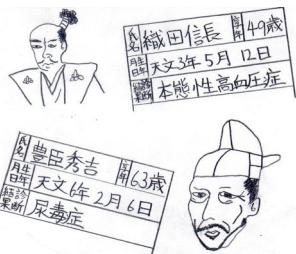 氏名 織田信長 年年 49歳
生年月日 天文3年5月12日
診断結果 本態性高血圧症
氏名 豊臣秀吉 享年 63歳
生年月日 天文6年2月6日
診断結果 尿毒症